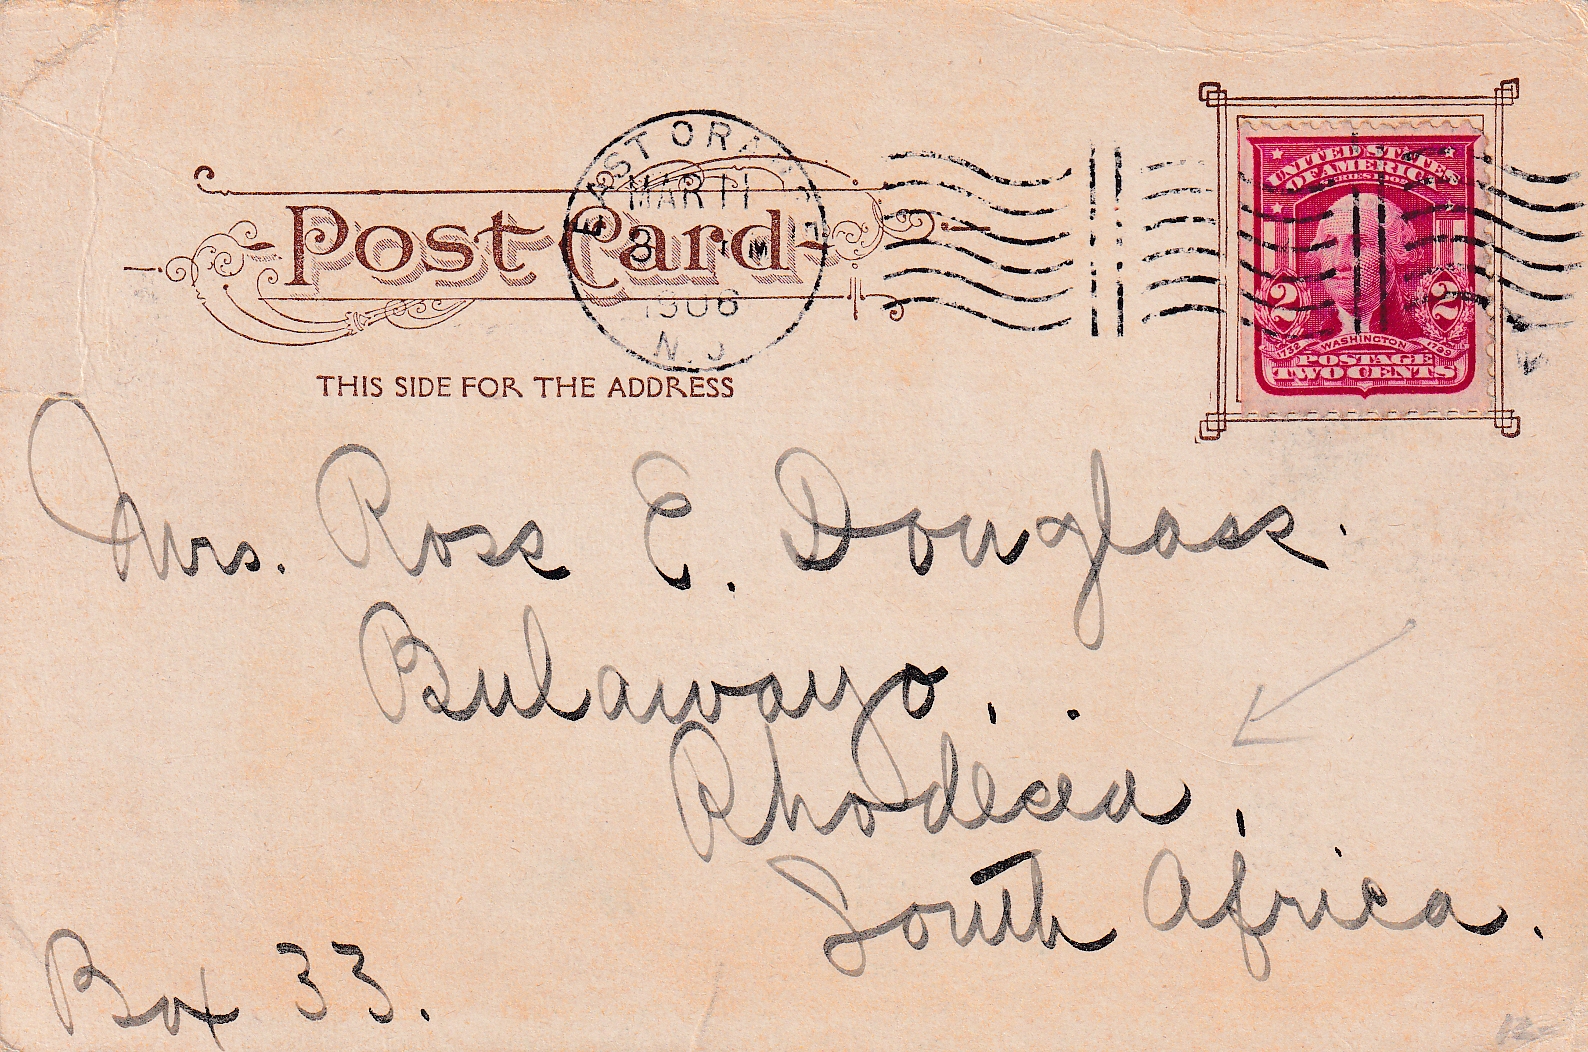 EAST ORANGE
MAR 11
3
M
1906
N.J.
Post Card
THIS SIDE FOR THE ADDRESS
UNITED STATES
OF AMERICA
SERIES 1902
2 2
1732 WASHINGTON 1799
POSTAGE
TWO CENTS
Mrs. Ross E. Douglass.
Bulawayo,.
Rhodesia,
South Africa.
Box 33.